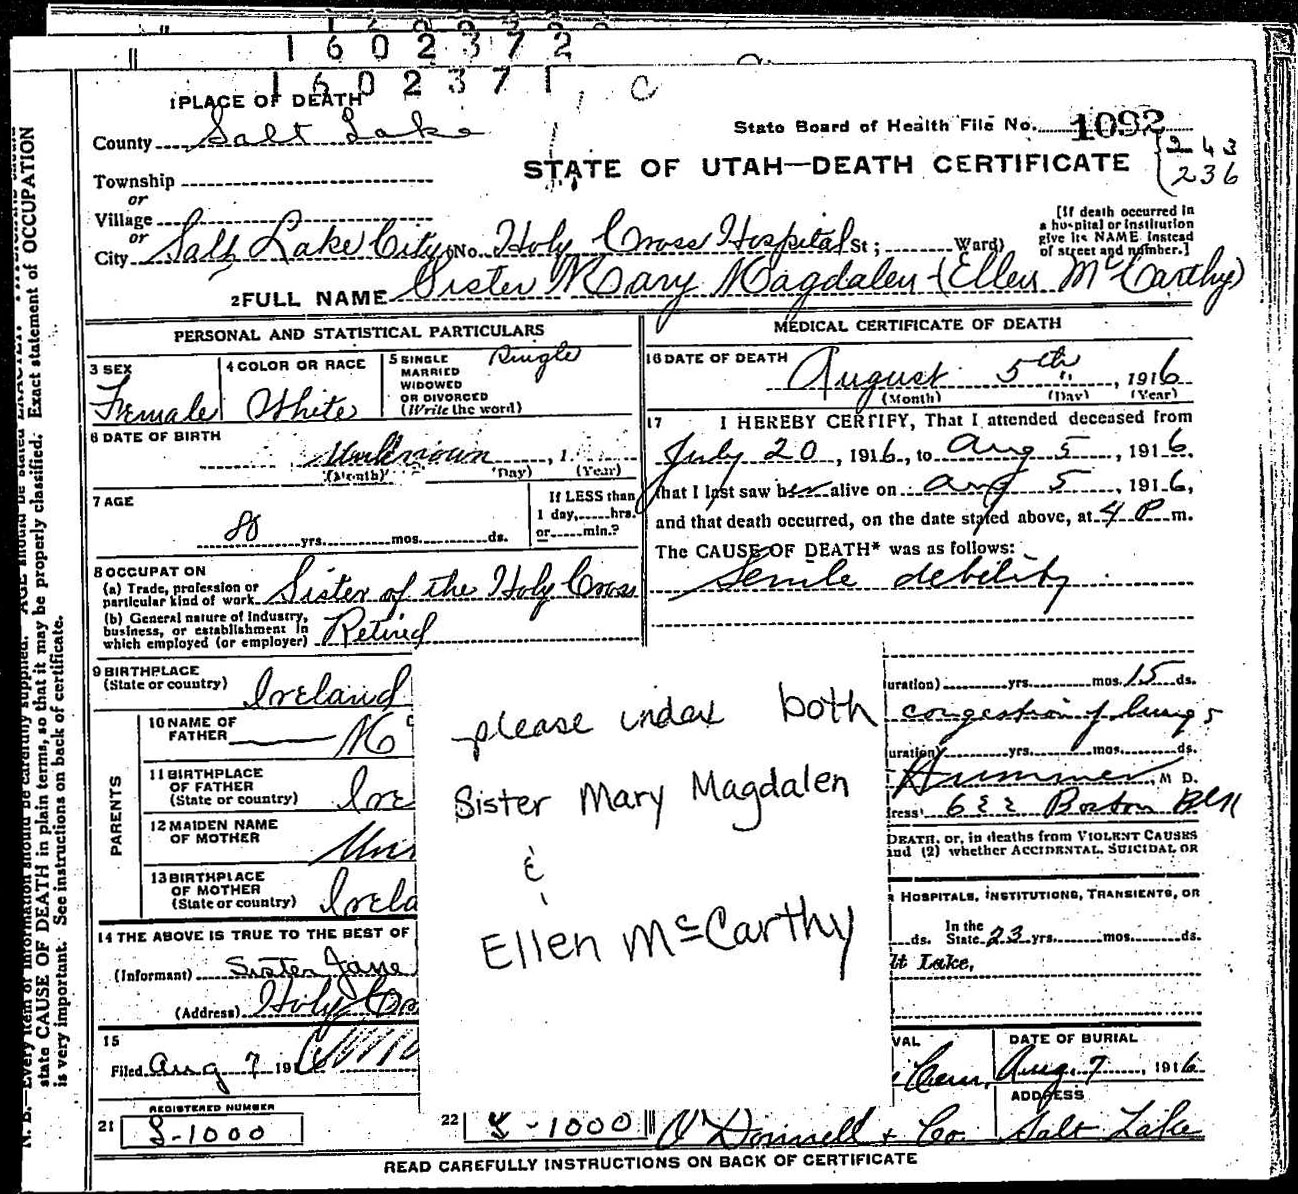 1602372
1602371 C
1 PLACE OF DEATH
County Salt Lake
State Board of Health File No. 1092
243
236
STATE OF UTAH—DEATH CERTIFICATE
Township
or
Village
or
City Salt Lake City (No. Holy Cross Hospital St; Ward)
[If death occurred in
a hospital or institution
give its NAME instead
of street and number.]
2 FULL NAME Sister Mary Magdalen (Ellen McCarthy)
PERSONAL AND STATISTICAL PARTICULARS
3 SEX
Female
4 COLOR OR RACE
White
5 SINGLE
MARRIED
WIDOWED
OR DIVORCED
(Write the word)
Single
6 DATE OF BIRTH
Unknown, 1
(Month) (Day) (Year)
7 AGE
80 yrs. mos. ds.
If LESS than
1 day, hrs.
or min.?
8 OCCUPATION
(a) Trade, profession or
particular kind of work Sister of the Holy Cross
(b) General nature of industry,
business, or establishment in
which employed (or employer) Retired
9 BIRTHPLACE
(State or country) Ireland
PARENTS
10 NAME OF
FATHER Mc
11 BIRTHPLACE
OF FATHER
(State or country) Ire
12 MAIDEN NAME
OF MOTHER Un
13 BIRTHPLACE
OF MOTHER
(State or country) Irela
14 THE ABOVE IS TRUE TO THE BEST OF
(Informant) Sister Jane
(Address) Holy Cro
15
Filed Aug 7 191
REGISTERED NUMBER
21 S-1000
MEDICAL CERTIFICATE OF DEATH
16 DATE OF DEATH
August 5th, 1916
(Month) (Day) (Year)
17 I HEREBY CERTIFY, That I attended deceased from
July 20, 1916, to Aug 5, 1916.
that I last saw her alive on Aug 5, 1916,
and that death occurred, on the date stated above, at 4 P m.
The CAUSE OF DEATH* was as follows:
Senile debility
uration) yrs. mos. 15 ds.
congestion of lungs
uration) yrs. mos. ds.
Hummer, M D.
ress) 622 Boston Bld
DEATH, or, in deaths from VIOLENT CAUSES
and (2) whether ACCIDENTAL, SUICIDAL OR
HOSPITALS, INSTITUTIONS, TRANSIENTS, OR
ds. In the State 23 yrs. mos. ds.
lt Lake,
VAL
Cem.
DATE OF BURIAL
Aug. 7, 1916
22 S-1000
O'Donnell & Co.
ADDRESS
Salt Lake
please index both
Sister Mary Magdalen
&
Ellen McCarthy
READ CAREFULLY INSTRUCTIONS ON BACK OF CERTIFICATE
state CAUSE OF DEATH in plain terms, so that it may be properly classified. Exact statement of OCCUPATION
is very important. See instructions on back of certificate.